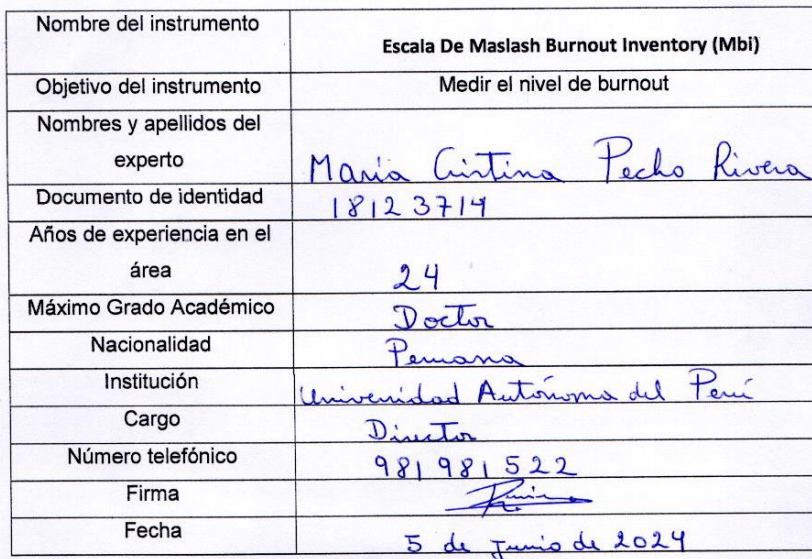 Nombre del instrumento
Escala De Maslash Burnout Inventory (Mbi)
Objetivo del instrumento
Medir el nivel de burnout
Nombres y apellidos del
experto
María Cristina Pecho Rivera
Documento de identidad
18123714
Años de experiencia en el
área
24
Máximo Grado Académico
Doctor
Nacionalidad
Peruana
Institución
Universidad Autónoma del Perú
Cargo
Director
Número telefónico
981981522
Firma
Fecha
5 de Junio de 2024